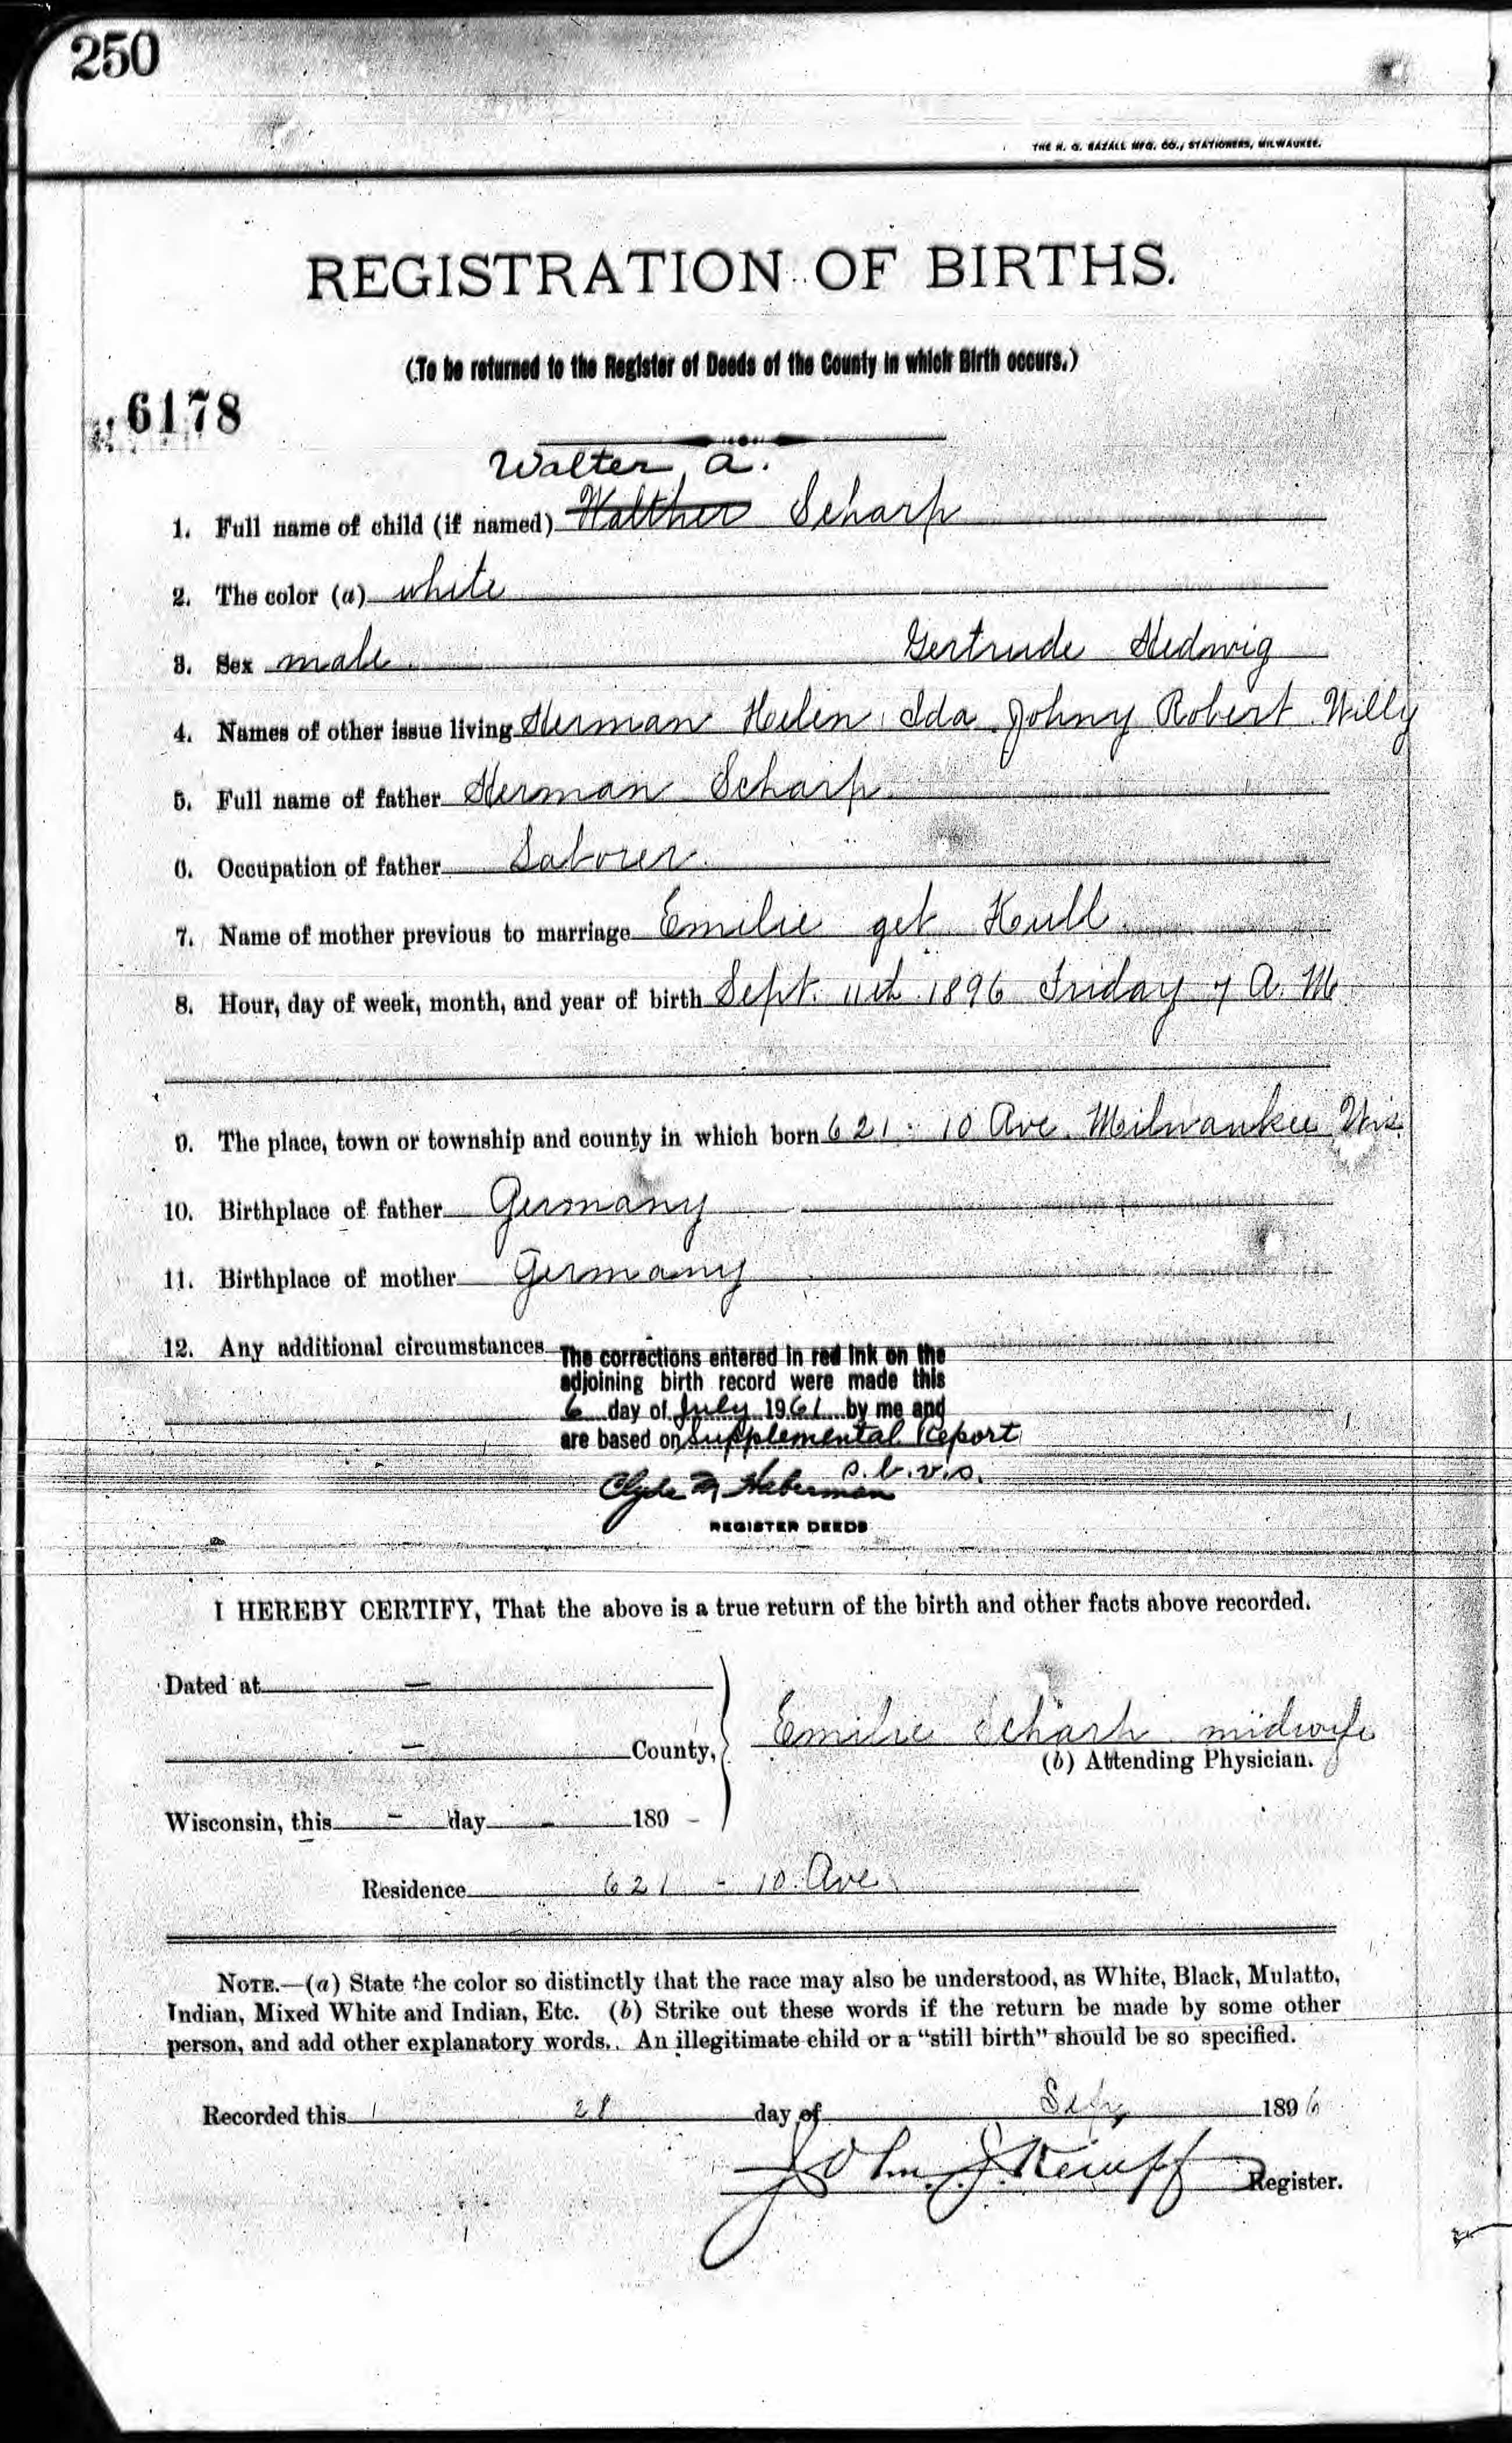 250
THE H. G. RAZALL MFG. CO., STATIONERS, MILWAUKEE.
REGISTRATION OF BIRTHS.
(To be returned to the Register of Deeds of the County in which Birth occurs.)
6178
Walter a.
1. Full name of child (if named) Walther Scharp
2. The color (a) white
Gertrude Hedwig
3. Sex male
4. Names of other issue living Herman Helen Ida Johny Robert Willy
5. Full name of father Herman Scharp
6. Occupation of father Laborer
7. Name of mother previous to marriage Emilie get Kull
8. Hour, day of week, month, and year of birth Sept. 11th 1896 Friday 7 A. M
9. The place, town or township and county in which born 621 - 10 Ave Milwaukee Wis.
10. Birthplace of father Germany
11. Birthplace of mother Germany
12. Any additional circumstances The corrections entered in red ink on the
adjoining birth record were made this
6 day of July 1961 by me and
are based on Supplemental Report
s.b.v.s.
Clyde M Heberman
REGISTER DEEDS
I HEREBY CERTIFY, That the above is a true return of the birth and other facts above recorded.
Dated at –
– County,
Emilie Scharp midwife
(b) Attending Physician.
Wisconsin, this – day – 189 –
Residence 621 - 10. Ave
NOTE.—(a) State the color so distinctly that the race may also be understood, as White, Black, Mulatto,
Indian, Mixed White and Indian, Etc. (b) Strike out these words if the return be made by some other
person, and add other explanatory words. An illegitimate child or a “still birth” should be so specified.
Recorded this 28 day of Sep 1896
John J Kempf Register.